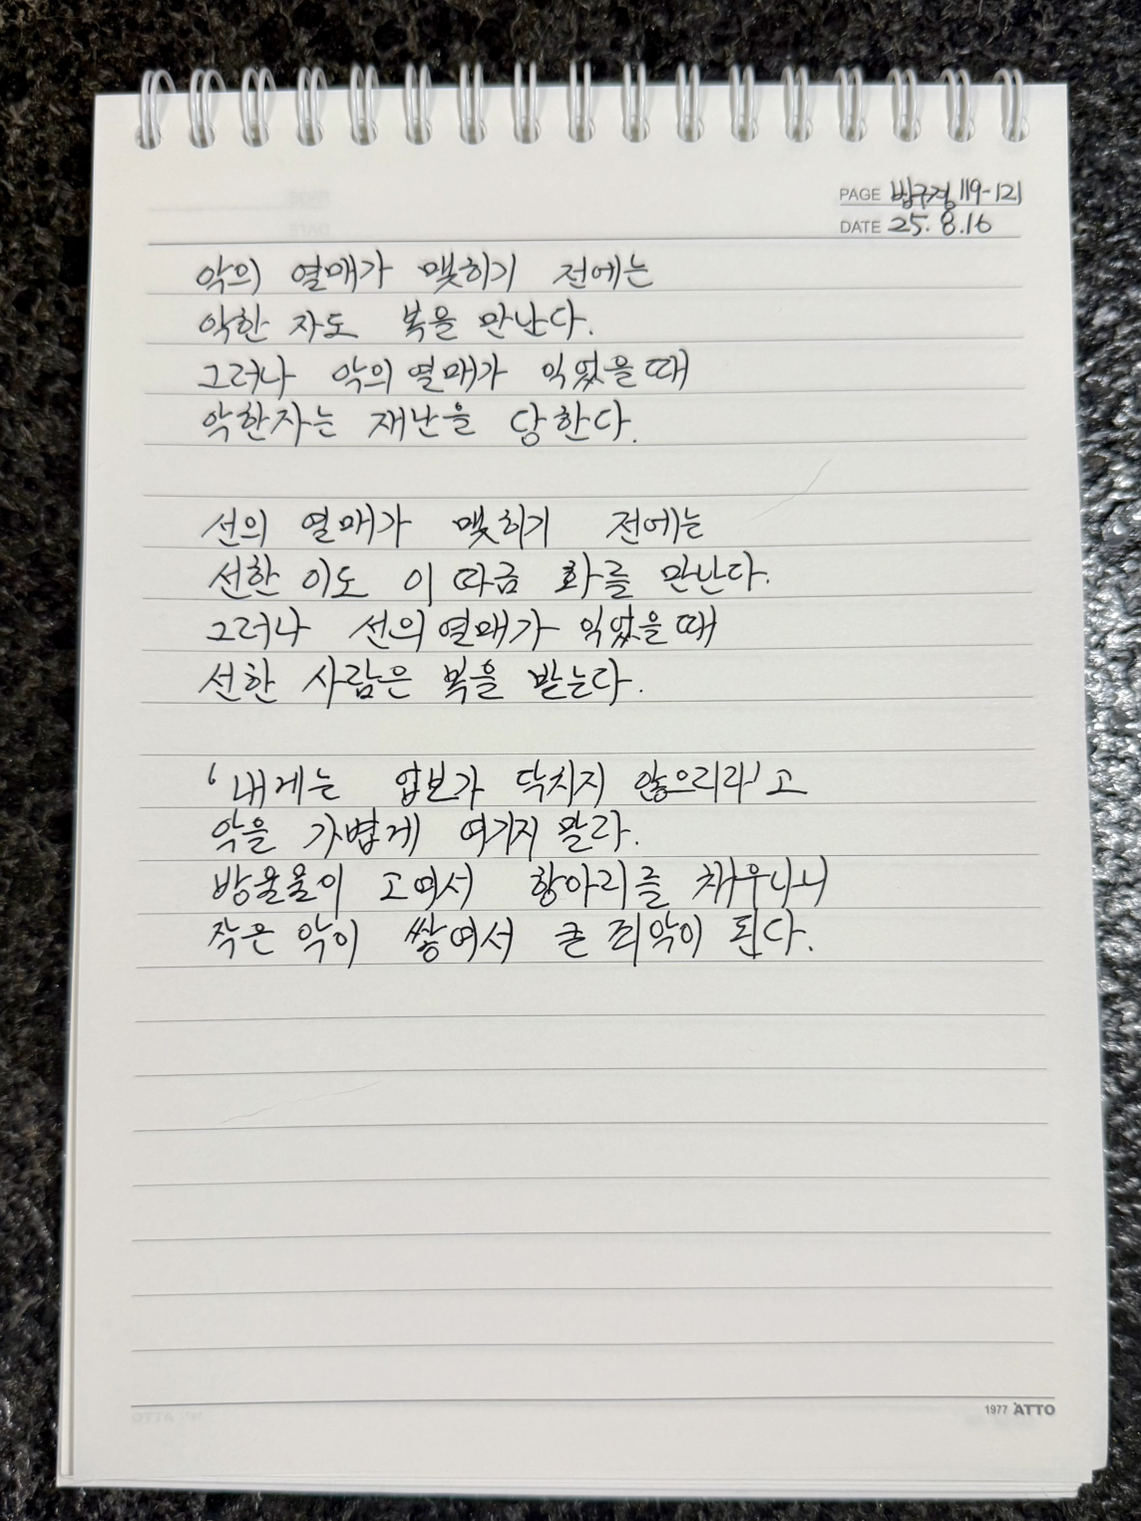 PAGE 법구경 119-121
DATE 25. 8. 16
악의 열매가 맺히기 전에는
악한 자도 복을 만난다.
그러나 악의 열매가 익었을 때
악한자는 재난을 당한다.
선의 열매가 맺히기 전에는
선한 이도 이따금 화를 만난다.
그러나 선의 열매가 익었을 때
선한 사람은 복을 받는다.
'내게는 업보가 닥치지 않으리라'고
악을 가볍게 여기지 말라.
방울물이 고여서 항아리를 채우나니
작은 악이 쌓여서 큰 죄악이 된다.
1977 ATTO